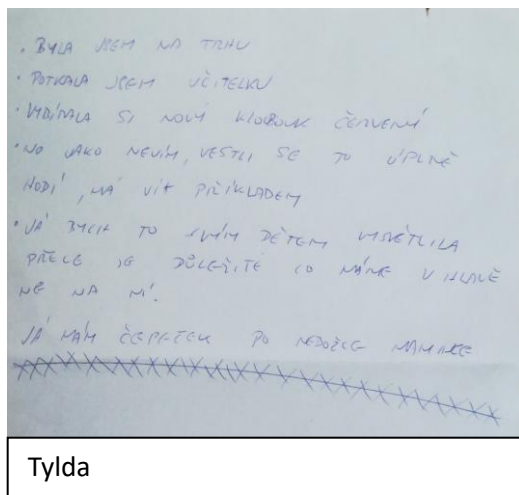 • BYLA JSEM NA TRHU
• POTKALA JSEM UČITELKU
• VYBÍRALA SI NOVÝ KLOBOUK ČERVENÝ
• NO JAKO NEVÍM, JESTLI SE TO ÚPLNĚ
HODÍ, MÁ JÍT PŘÍKLADEM
• JÁ BYCH TO SVÝM DĚTEM VYSVĚTLILA
PŘECE JE DŮLEŽITÉ CO MÁME V HLAVĚ
NE NA NÍ.
JÁ MÁM ČEPEČEK PO NEBOŽCE MAMINCE
Tylda